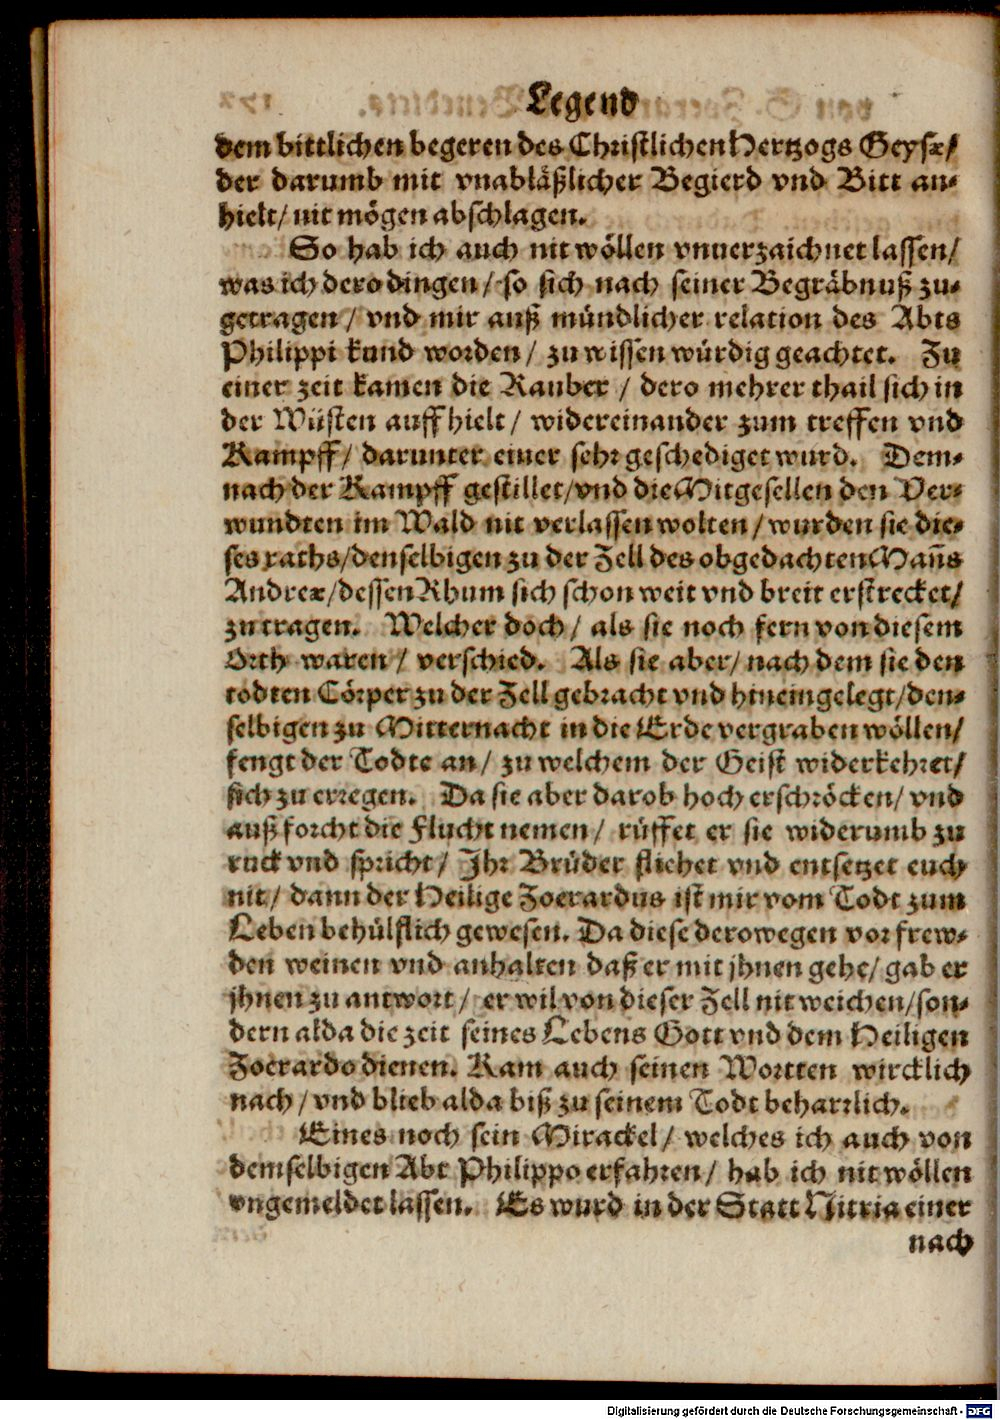 Legend
dem bittlichen begeren des Christlichen Hertzogs Geysæ/
der darumb mit vnabläßlicher Begierd vnd Bitt an-
hielt/ nit mögen abschlagen.
So hab ich auch nit wöllen vnuerzaichnet lassen/
was ich dero dingen/ so sich nach seiner Begräbnuß zu-
getragen/ vnd mir auß mündlicher relation des Abts
Philippi kund worden/ zu wissen würdig geachtet. Zu
einer zeit kamen die Rauber/ dero mehrer thail sich in
der Wüsten auff hielt/ widereinander zum treffen vnd
Kampff/ darunter einer sehr geschediget wurd. Dem-
nach der Kampff gestillet/vnd die Mitgesellen den Ver-
wundten im Wald nit verlassen wolten/ wurden sie die-
ses raths/denselbigen zu der Zell des obgedachten Mañs
Andreæ/dessen Rhum sich schon weit vnd breit erstrecket/
zu tragen. Welcher doch/ als sie noch fern von diesem
Orth waren/ verschied. Als sie aber/ nach dem sie den
todten Cörper zu der Zell gebracht vnd hineingelegt/den-
selbigen zu Mitternacht in die Erde vergraben wöllen/
fengt der Todte an/ zu welchem der Geist widerkehret/
sich zu erregen. Da sie aber darob hoch erschröcken/ vnd
auß forcht die Flucht nemen/ rüffet er sie widerumb zu
ruck vnd spricht/ Ihr Brüder fliehet vnd entsetzet euch
nit/ dann der Heilige Zoerardus ist mir vom Todt zum
Leben behülflich gewesen. Da diese derowegen vor frew-
den weinen vnd anhalten daß er mit jhnen gehe/ gab er
jhnen zu antwort/ er wil von dieser Zell nit weichen/son-
dern alda die zeit seines Lebens Gott vnd dem Heiligen
Zoerardo dienen. Kam auch seinen Wortten wircklich
nach/ vnd blieb alda biß zu seinem Todt beharrlich.
Eines noch sein Mirackel/ welches ich auch von
demselbigen Abt Philippo erfahren/ hab ich nit wöllen
vngemeldet lassen. Es wurd in der Statt Nitria einer
nach
Digitalisierung gefördert durch die Deutsche Forschungsgemeinschaft - DFG